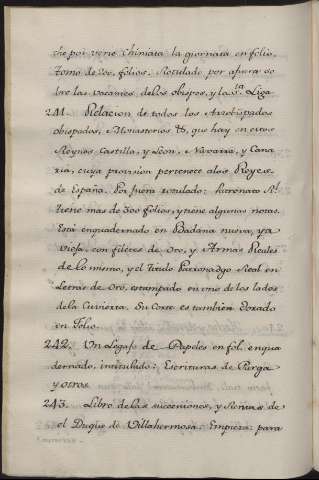 che poi viene chimata la giornata en folio.
Tomo de 200. folios. Rotulado por afuera so
bre las vacantes de los obispos, y la S.ta Liga
241. Relacion de todos los Arzobispados
obispados, Monasterios &. que hay en estos
Reynos Castilla, y Leon, Navarra, y Cana
ria, cuya provision pertenece alos Reyes
de España. Por fuera rotulado: Patronato R.l
tiene más de 300 folios, y tiene algunas notas.
Está enquadernado en Badana nueva, ya
vieja, con filetes de oro, y Armas Reales
de lo mismo, y el titulo Patronadgo Real en
Letras de oro, estampado en uno de los lados
de la Cuvierta. Su Corte es tambien dorado
en folio.
242. Un Legajo de Papeles en fol. enqua
dernado, intitulado: Escrituras de
y otros
243. Libro de las succesiones, y Rentas de
el Duque de Villahermosa: Empieza: para